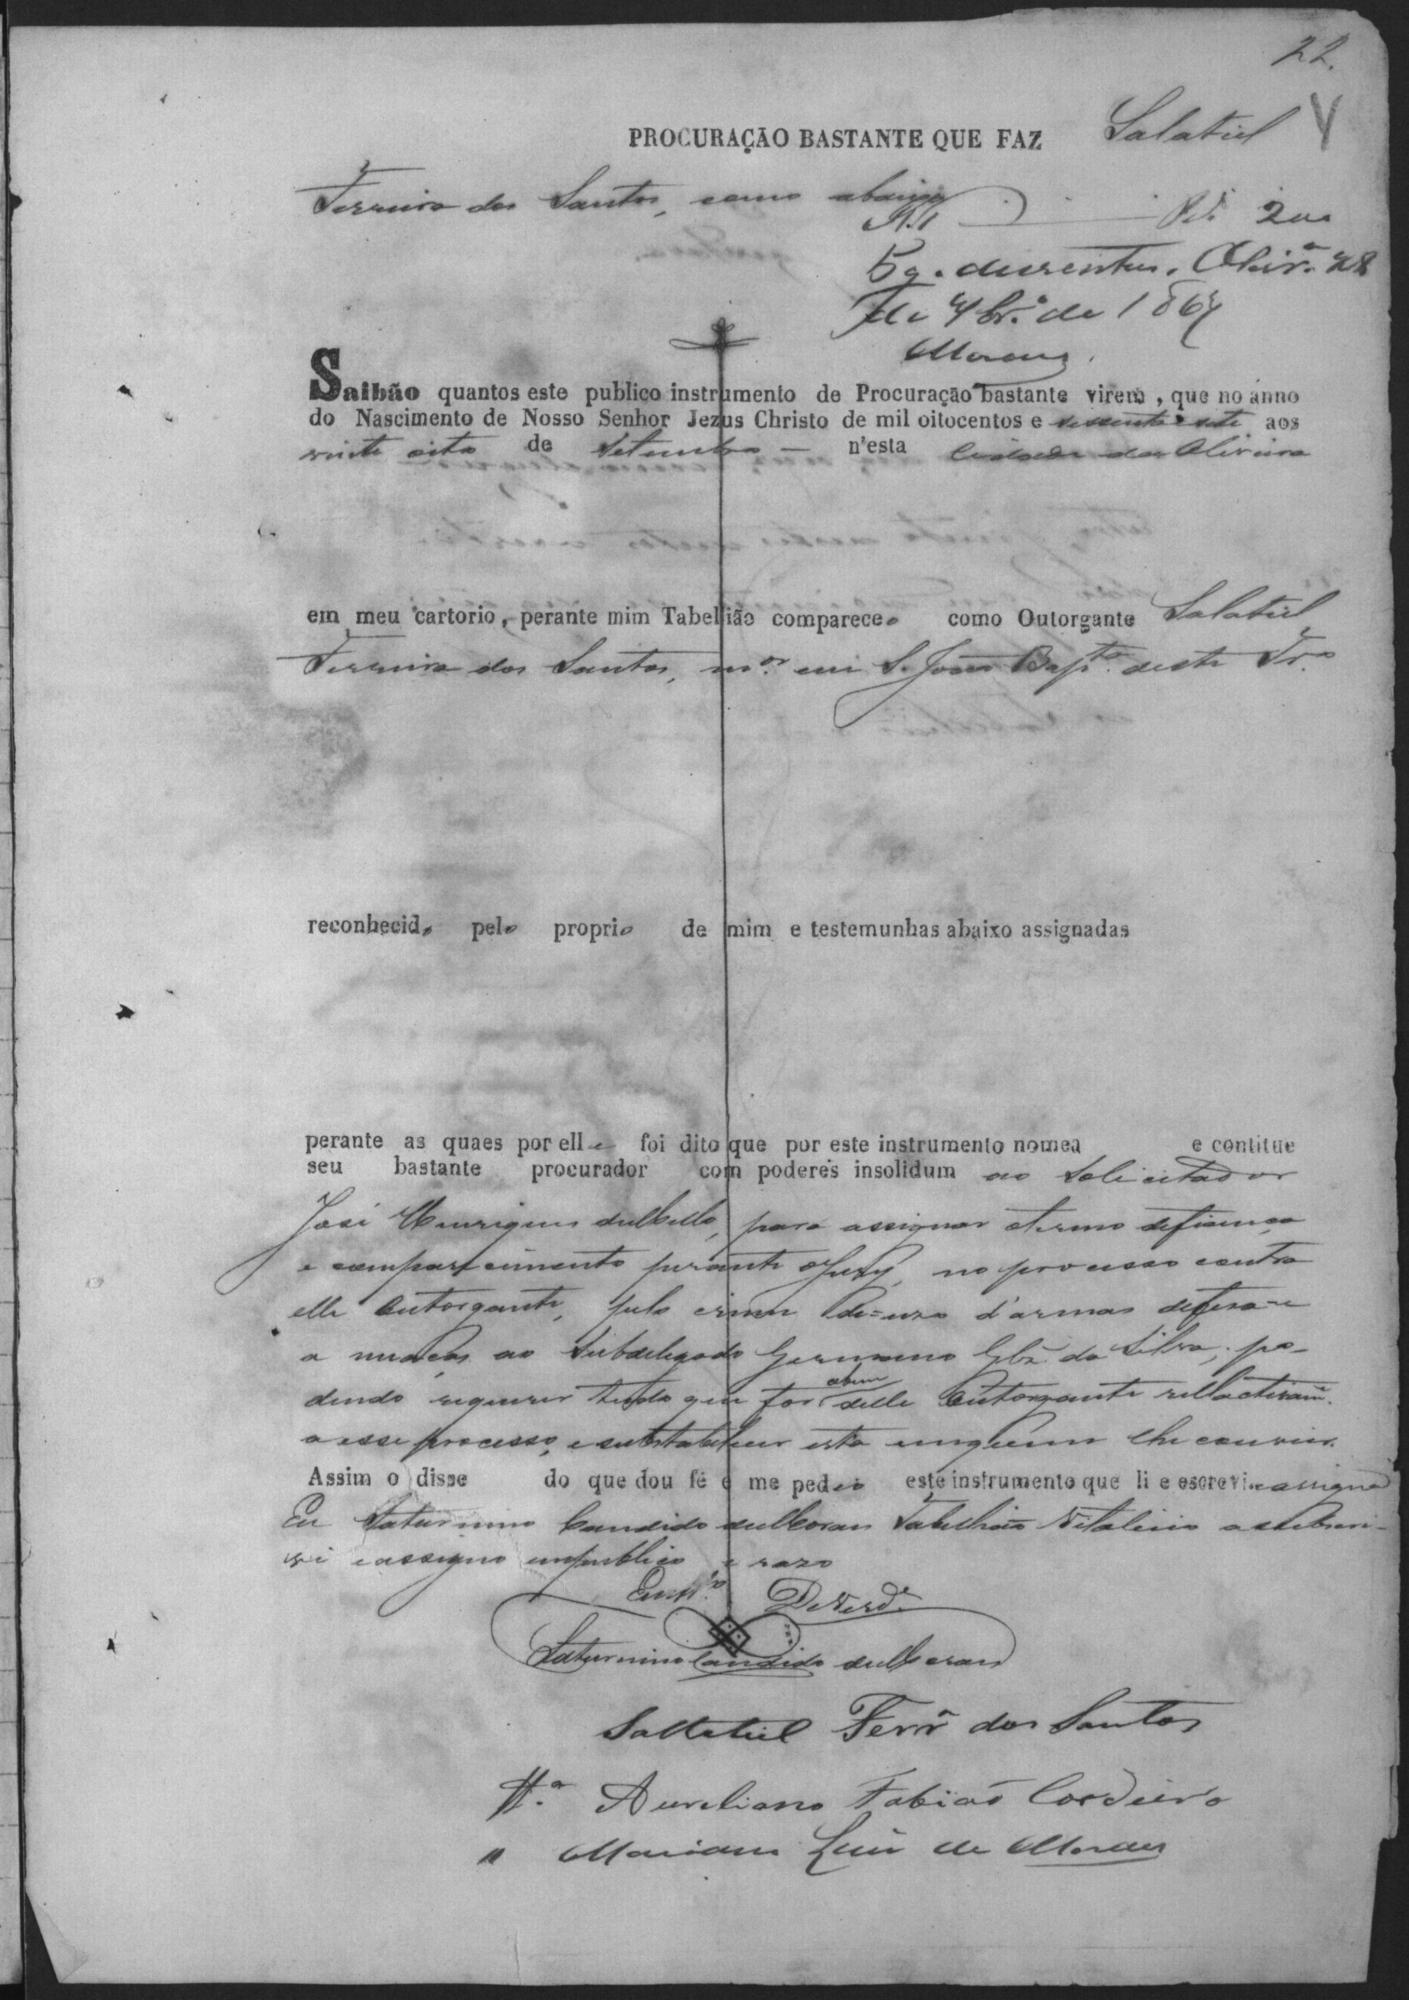 22.
PROCURAÇÃO BASTANTE QUE FAZ Salatiel
Ferreira dos Santos, como abaixo
N. 1 Rs. 200
Pg. duzentos. Olivr.ª 28
de 7br.º de 1867
Moraes.
Saibão quantos este publico instrumento de Procuração bastante virem, que no anno
do Nascimento de Nosso Senhor Jezus Christo de mil oitocentos e sessenta e sete aos
vinte oito de Setembro — n'esta Cidade da Oliveira
em meu cartorio, perante mim Tabellião compareceo como Outorgante Salatiel
Ferreira dos Santos, m.or em S. João Bapt.ª deste Tr.º
reconhecido pelo proprio de mim e testemunhas abaixo assignadas
perante as quaes por elle foi dito que por este instrumento nomea e contitue
seu bastante procurador com poderes insolidum ao Solicitador
José Henriques de Mello, para assignar o termo de fiança
e comparecimento perante o Jury, no processo contra
elle Outorgante, pelo crime de uzo d'armas defesa e
ameaças ao Subdelegado Germano da Silva; po-
dendo requerer tudo que for a bem delle Outorgante rellativam.e
a esse processo, e substabelecer esta em quem lhe convier.
Assim o disse do que dou fé e me pedio este instrumento que li e escrevi. e assigna
Eu Saturnino Candido de Moraes Tabellião Vitalicio a subscre-
vi e assigno em publico e razo
Em t.º De verd.e
Saturnino Candido de Moraes
Sallatiel Ferr.ª dos Santos
Tt.ª Aureliano Fabião Cordeiro
" Mariano Luiz de Moraes